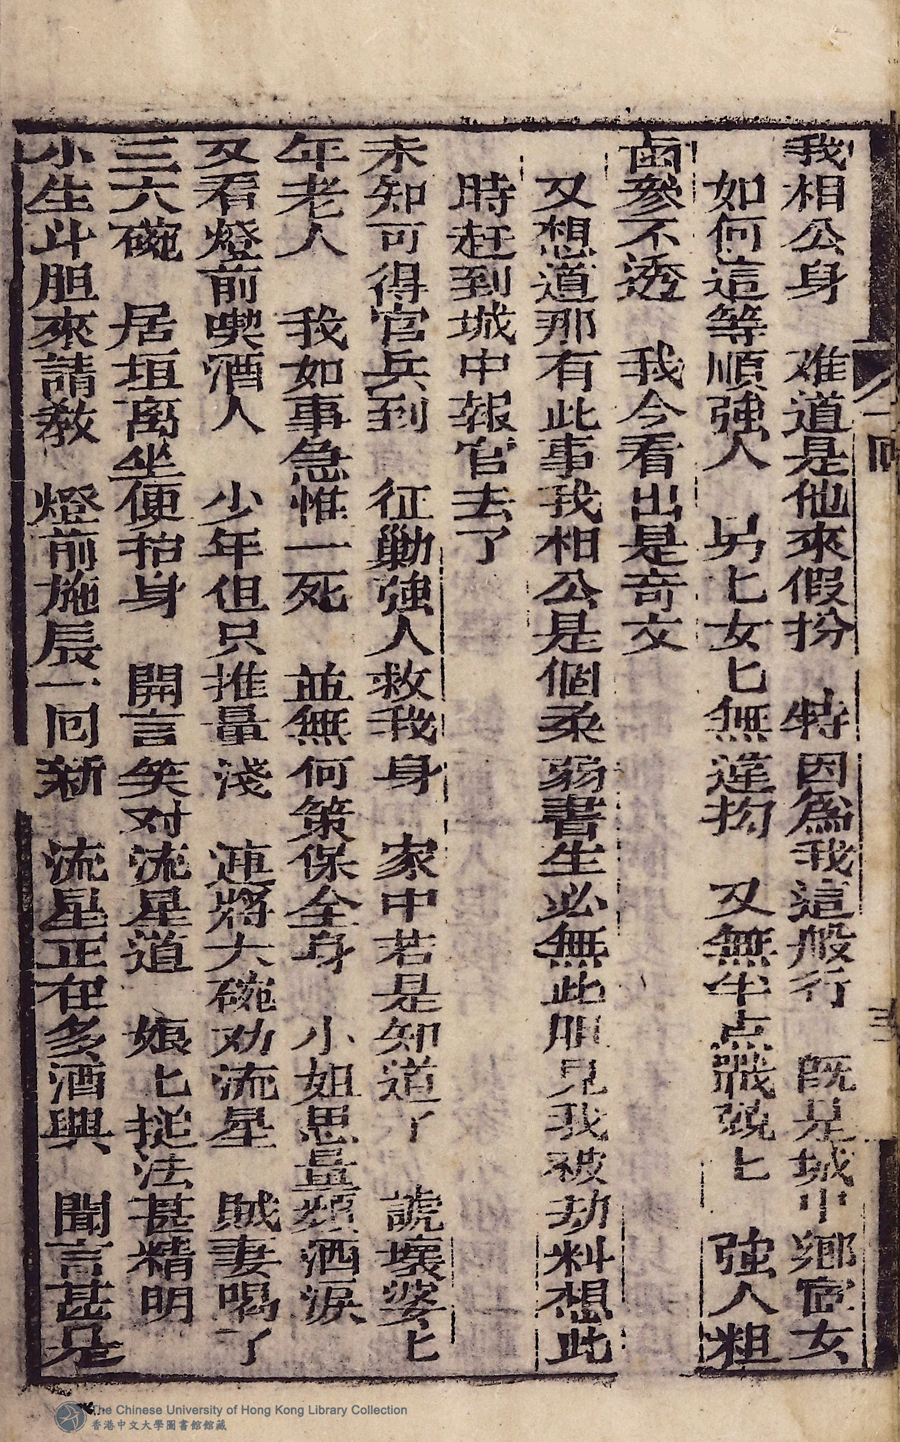 我相公身　难道是他來假扮　特因為我這般行　既是城中鄉宦女
如何這等順強人　男匕女匕無違拘　又無半点戰兢匕　強人粗
鹵參不透　我今看出是竒文
又想道那有此事我相公是個柔弱書生必無此胆見我被劫料想此
時赶到城中報官去了
未知可得官兵到　征勦強人救我身　家中若是知道了　諕壞婆匕
年老人　我如事急惟一死　並無何策保全身　小姐思量頻洒淚
又看燈前喫酒人　少年但只推量淺　連將大碗劝流星　賊妻喝了
三六碗　居垣离坐便抬身　開言笑对流星道　娘匕搥法甚精明
小生斗胆來請教　燈前施展一囘新　流星正在多酒興　聞言甚是
八囘
The Chinese University of Hong Kong Library Collection
香港中文大學圖書館館藏